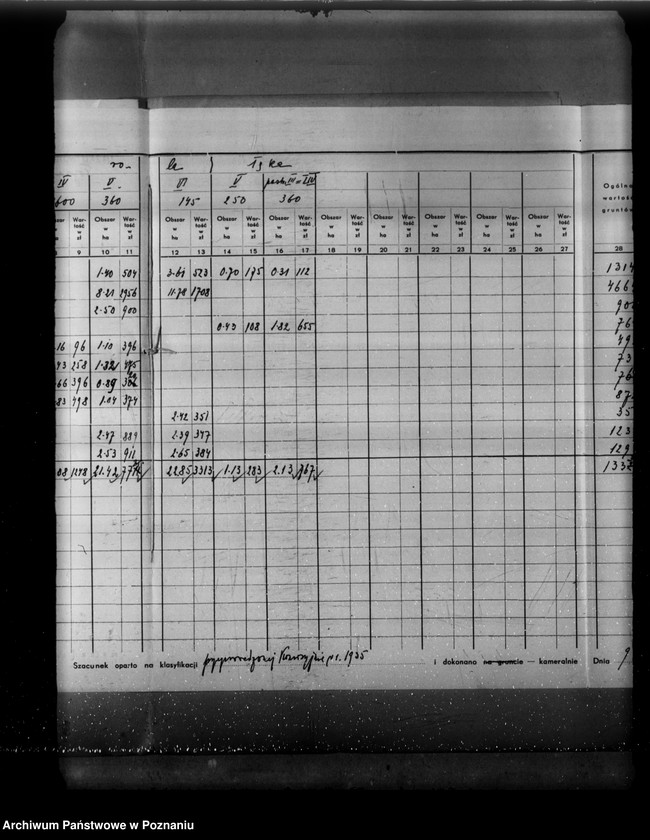 ro- la } Łąka
IV V VI V past. III-IV
600 360 145 250 360
Ogólna wartość gruntów
Obszar w ha Wartość w zł Obszar w ha Wartość w zł Obszar w ha Wartość w zł Obszar w ha Wartość w zł Obszar w ha Wartość w zł Obszar w ha Wartość w zł Obszar w ha Wartość w zł Obszar w ha Wartość w zł Obszar w ha Wartość w zł
9 10 11 12 13 14 15 16 17 18 19 20 21 22 23 24 25 26 27 28
1.40 504 3.61 523 0.70 175 0.31 112 1314
8.21 2956 11.78 1708 466
2.50 900 90
0.43 108 1.82 655 76
16 96 1.10 396 49
43 258 1.32 475 73
66 396 0.89 76
83 498 1.04 374 87
2.42 351 35
2.47 889 2.39 347 123
2.53 911 2.65 384 129
08 1248 21.42 22.85 3313 1.13 283 2.13 767 133
Szacunek oparto na klasyfikacji 1935 i dokonano na gruncie — kameralnie Dnia 9
Archiwum Państwowe w Poznaniu